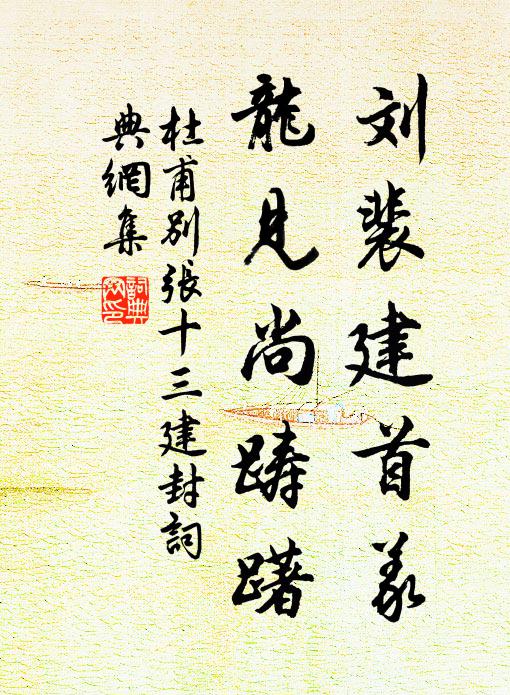 刘裴建首义
龍見尚踌躇
杜甫别張十三建封詞
典網集
詞典
网印